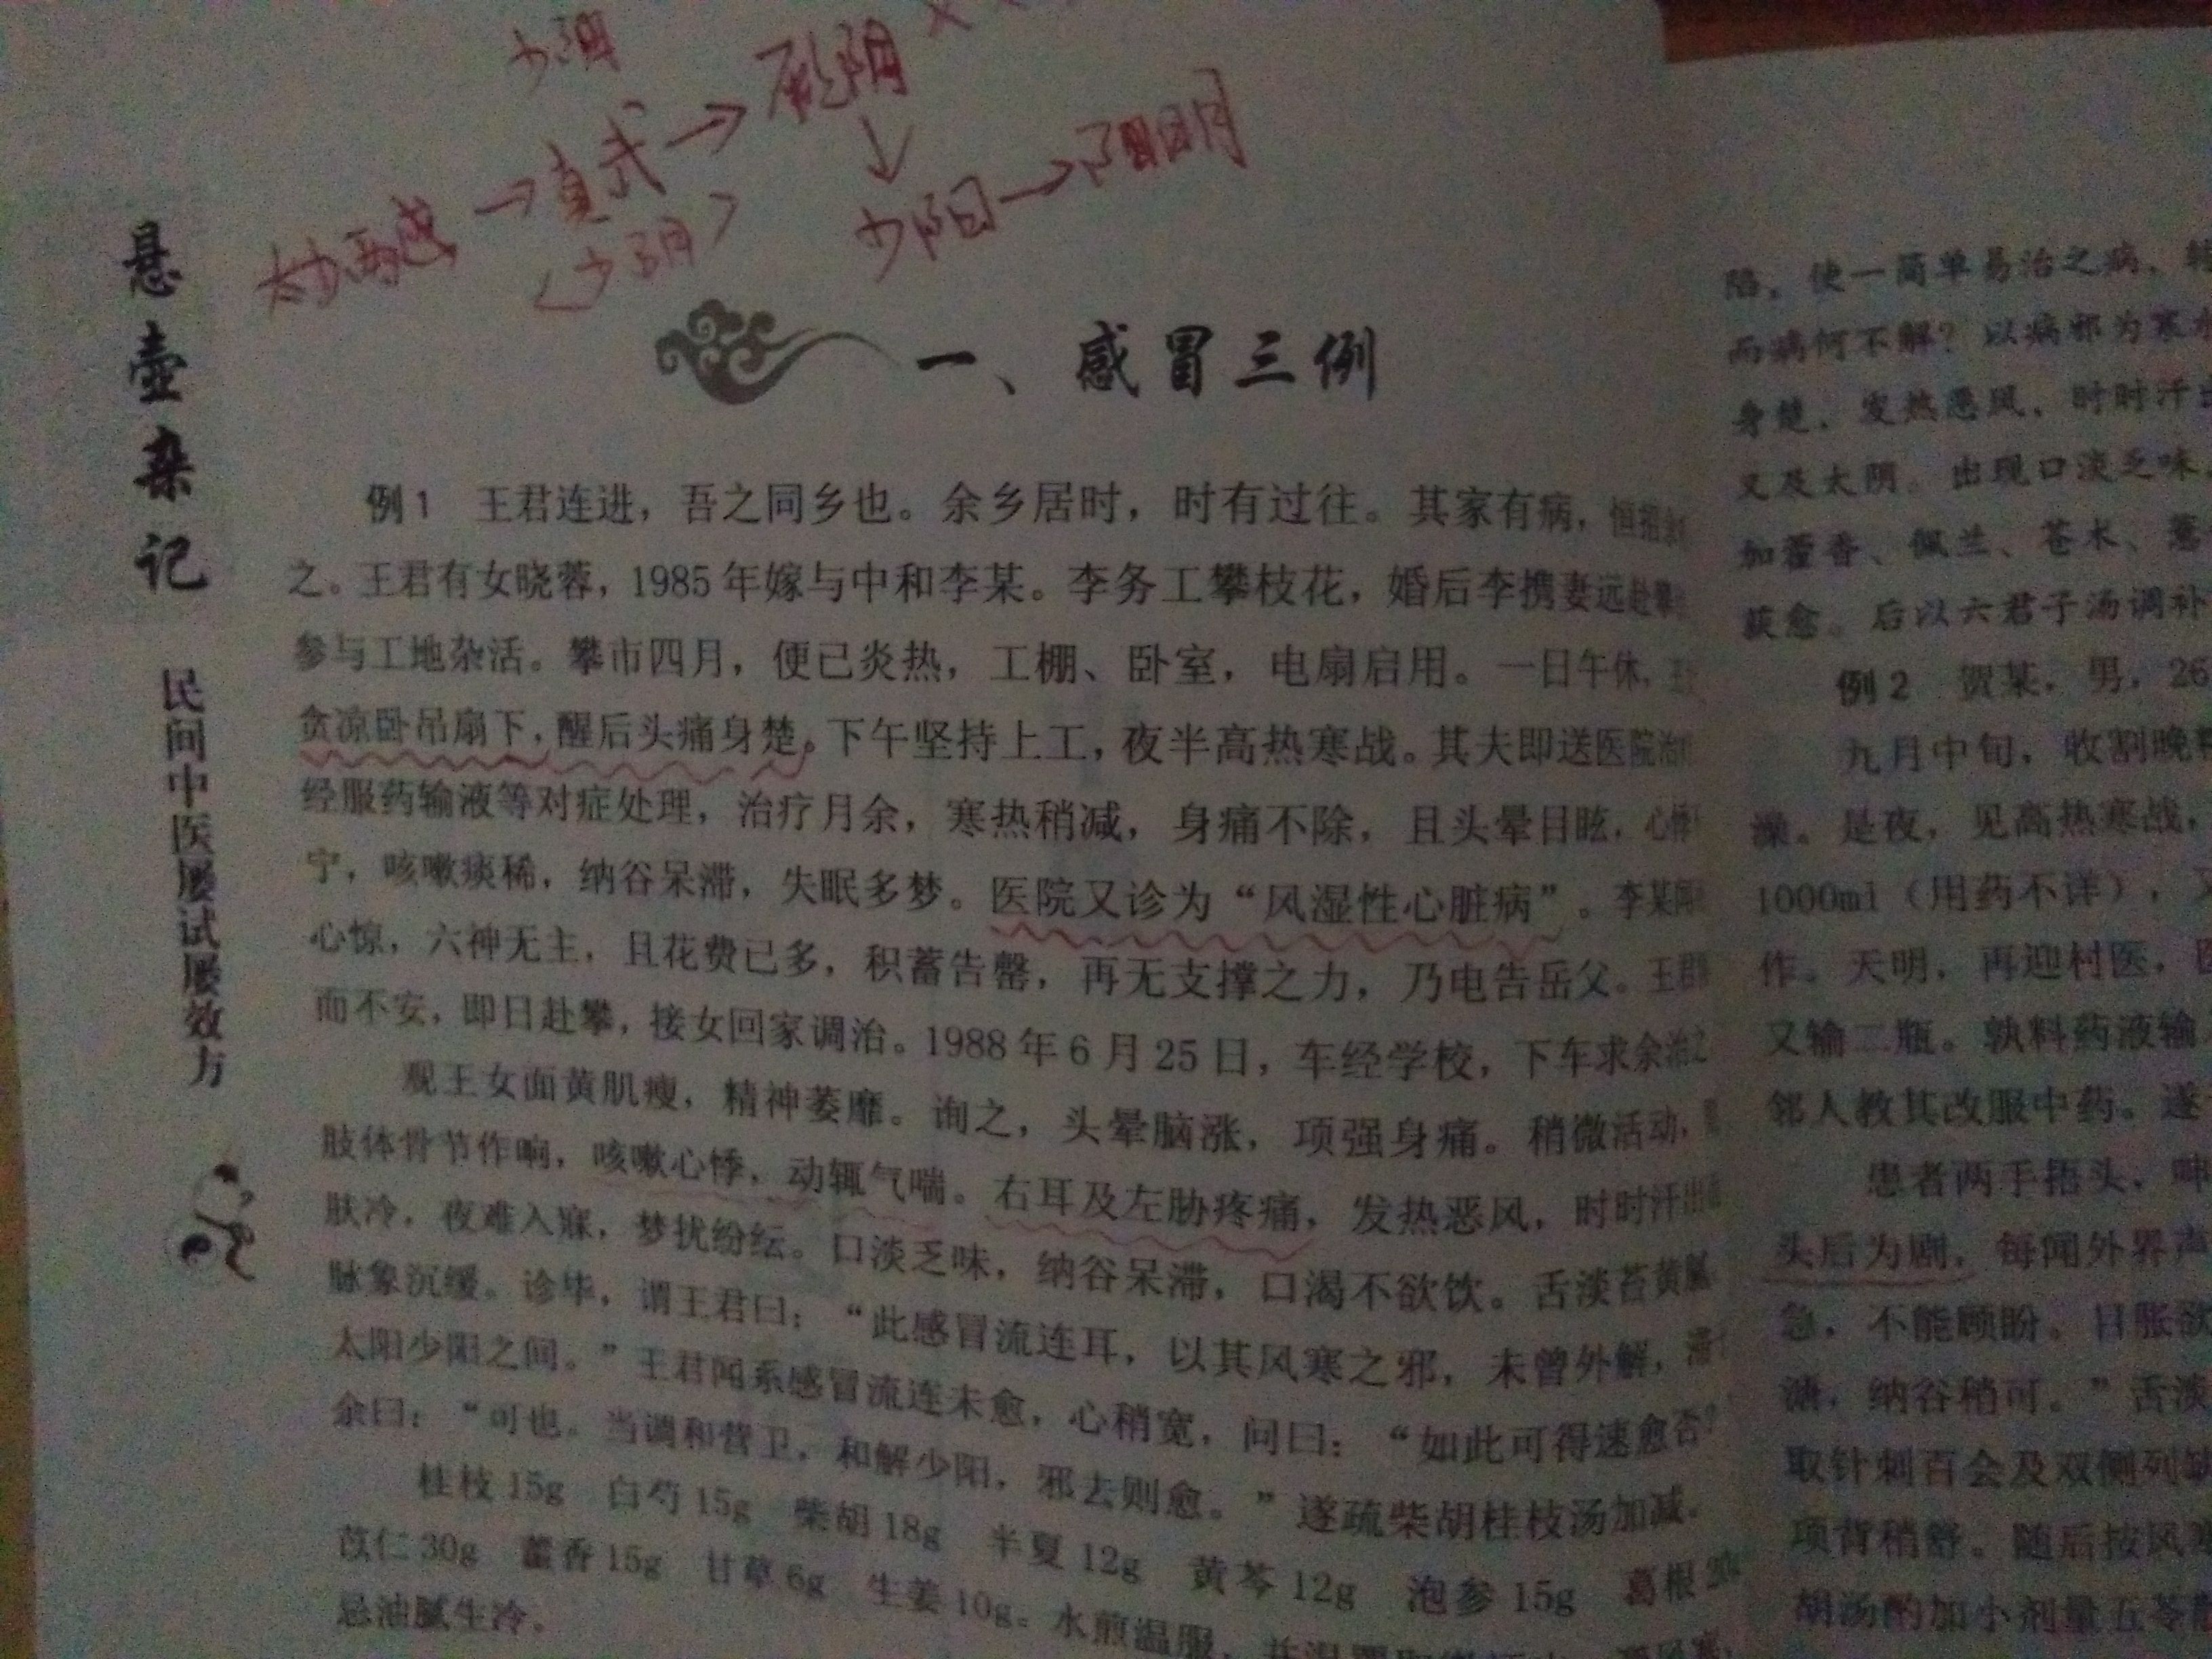 少阴
厥阴
真武
少阳→阳明
<少阴>
悬壶杂记
民间中医屡试屡效方
一、感冒三例
例1 王君连进，吾之同乡也。余乡居时，时有过往。其家有病，恒招余
之。王君有女晓蓉，1985年嫁与中和李某。李务工攀枝花，婚后李携妻远赴攀
参与工地杂活。攀市四月，便已炎热，工棚、卧室，电扇启用。一日午休，王
贪凉卧吊扇下，醒后头痛身楚。下午坚持上工，夜半高热寒战。其夫即送医院治
经服药输液等对症处理，治疗月余，寒热稍减，身痛不除，且头晕目眩，心悸
宁，咳嗽痰稀，纳谷呆滞，失眠多梦。医院又诊为“风湿性心脏病”。李某闻
心惊，六神无主，且花费已多，积蓄告罄，再无支撑之力，乃电告岳父。王君
而不安，即日赴攀，接女回家调治。1988年6月25日，车经学校，下车求余治之
观王女面黄肌瘦，精神萎靡。询之，头晕脑涨，项强身痛。稍微活动，
肢体骨节作响，咳嗽心悸，动辄气喘。右耳及左胁疼痛，发热恶风，时时汗出
肤冷，夜难入寐，梦扰纷纭。口淡乏味，纳谷呆滞，口渴不欲饮。舌淡苔黄腻
脉象沉缓。诊毕，谓王君曰：“此感冒流连耳，以其风寒之邪，未曾外解，
太阳少阳之间。”王君闻系感冒流连未愈，心稍宽，问曰：“如此可得速愈否？
余曰：“可也。当调和营卫，和解少阳，邪去则愈。”遂疏柴胡桂枝汤加减。
桂枝15g 白芍15g 柴胡18g 半夏12g 黄芩12g 泡参15g 葛根
苡仁30g 藿香15g 甘草6g 生姜10g。水煎温服，
忌油腻生冷。
陷，使一简单易治之病，
而病何不解？以病邪为寒
身楚，发热恶风，时时汗
又及太阴，出现口淡乏味，
加藿香、佩兰、苍术、
获愈。后以六君子汤调补
例2 贺某，男，26
九月中旬，收割晚
澡。是夜，见高热寒战，
1000ml（用药不详），
作。天明，再迎村医，
又输二瓶。孰料药液输
邻人教其改服中药。遂
患者两手捂头，呻
头后为剧，每闻外界声
急，不能顾盼。目胀欲
溏，纳谷稍可。”舌淡
取针刺百会及双侧列缺
项背稍舒。随后按风寒
胡汤酌加小剂量五苓